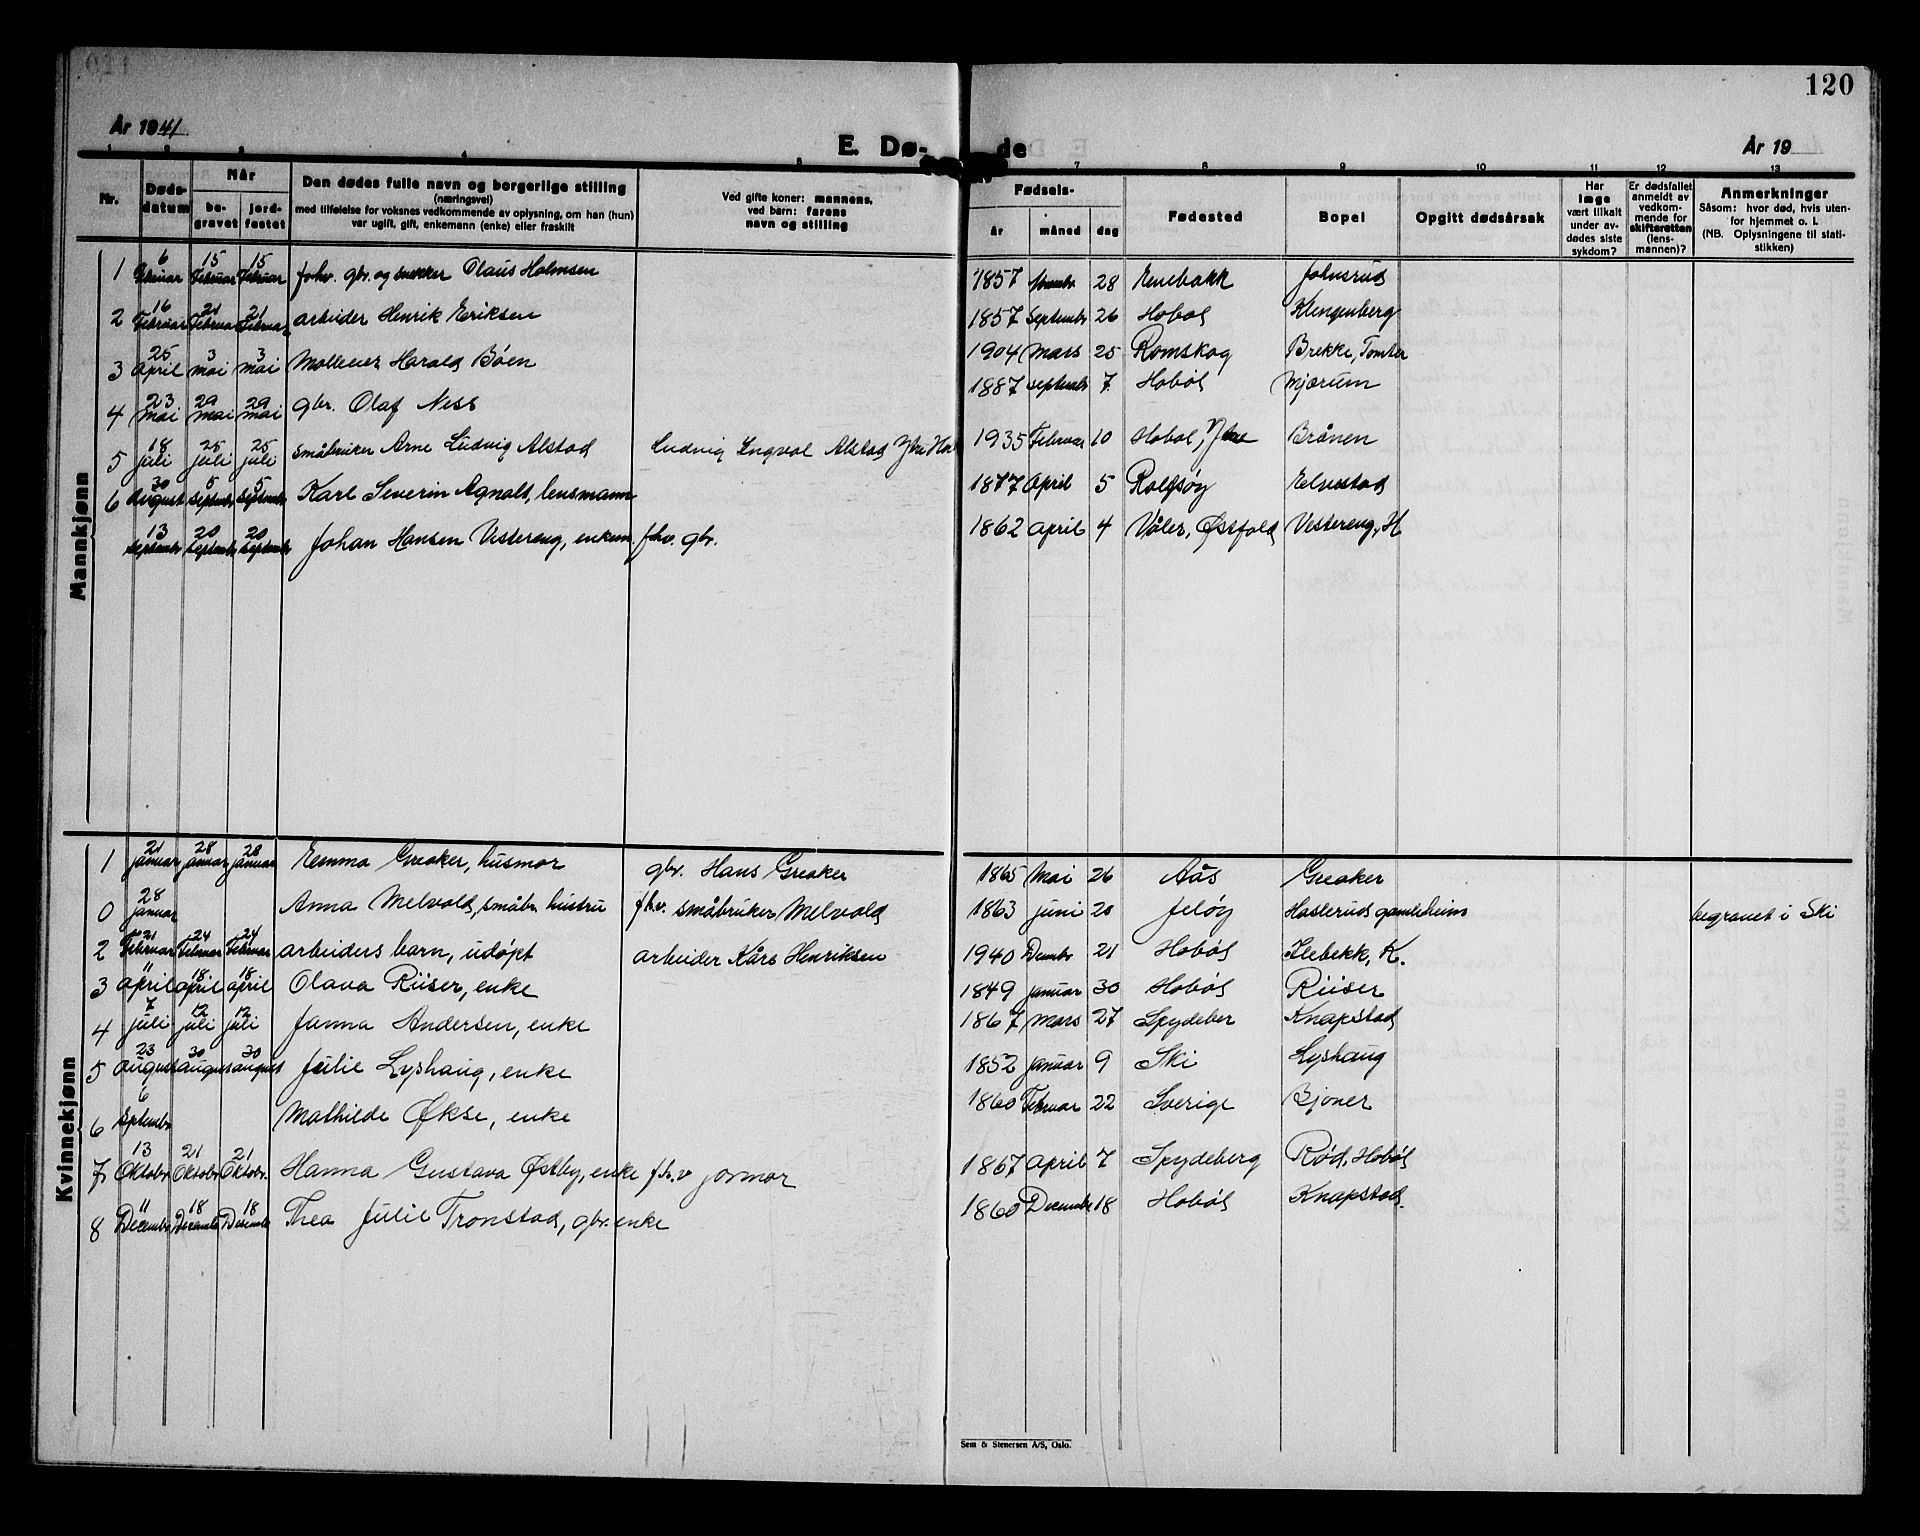 120
År 1941
E. Dø- de
År 19
1 2 3 4 5 7 8 9 10 11 12 13
Nr. | Døds-datum | Når be-gravet | jord-festet | Den dødes fulle navn og borgerlige stilling (næringsvei) med tilføielse for voksnes vedkommende av oplysning, om han (hun) var ugift, gift, enkemann (enke) eller fraskilt | Ved gifte koner: mannens, ved barn: farens navn og stilling | Fødsels- år | måned | dag | Fødested | Bopel | Opgitt dødsårsak | Har læge vært tilkalt under av-dødes siste sykdom? | Er dødsfallet anmeldt av vedkom-mende for skifteretten (lens-mannen)? | Anmerkninger Såsom: hvor død, hvis uten-for hjemmet o. l. (NB. Oplysningene til stati-stikken)
Mannkjønn
1 | 6 Februar | 15 Februar | 15 Februar | forhv. gbr. og snekker Olaus Holmsen | 1857 | 28 | Enebakk | Johnsrud
2 | 16 Februar | 21 Februar | 21 Februar | arbeider Henrik Eriksen | 1857 | Septembr | 26 | Hobøl | Klengenberg
3 | 25 April | 3 mai | 3 mai | Møllever Harald Bøen | 1904 | Mars | 25 | Rømskog | Brekke, Tomter
4 | 23 mai | 29 mai | 29 mai | gbr. Olaf Ness | 1887 | Septembr | 7 | Hobøl | Mjærum
5 | 18 juli | 25 juli | 25 juli | småbruker Arne Ludvig Alstad | Ludvig Ingval Alstad | 1935 | Februar | 10 | Hobøl, | Brånen
6 | 30 August | 5 Septembr | 5 Septembr | Karl Severin Agnalt, lensmann | 1877 | April | 5 | Rolvsøy | Elvestad
13 Septembr | 20 Septembr | 20 Septembr | Johan Hansen Vestereng, enkem. fhv. gbr. | 1862 | April | 4 | Våler, Østfold | Vestereng, H
Kvinnekjønn
1 | 21 januar | 28 januar | 28 januar | Emma Greaker, husmor | gbr. Hans Greaker | 1865 | Mai | 26 | Aås | Greaker
0 | 28 januar | Anna Melvold, småbr. hustru | fhv. småbruker Melvold | 1863 | juni | 20 | Jeløy | Haslerud gamleheim | begravet i Ski
2 | 21 Februar | 24 Februar | 24 Februar | arbeiders barn, udøpt | arbeider Kåre Henriksen | 1940 | Desembr | 21 | Hobøl | Ilebekk, K.
3 | 11 April | 18 april | 18 april | Olava Riiser, enke | 1849 | januar | 30 | Hobøl | Riiser
4 | 7 juli | 12 juli | 12 juli | Janna Andersen, enke | 1867 | mars | 27 | Spydeber | Knapstad
5 | 23 August | 30 august | 30 august | Julie Lyshaug, enke | 1852 | januar | 9 | Ski | Lyshaug
6 | 6 Septembr | Mathilde Økse, enke | 1860 | Februar | 22 | Sverige | Bjoner
7 | 13 Oktobr | 21 Oktobr | 21 Oktobr. | Hanna Gustava Østby, enke f.h.v jormor | 1867 | April | 7 | Spydeberg | Rød, Hobøl
8 | 11 Decembr | 18 Decembr | 18 Desembr | Thea Julie Tronstad, gbr. enke | 1860 | Decembr | 18 | Hobøl | Knapstad.
Sem & Stenersen A/S, Oslo.